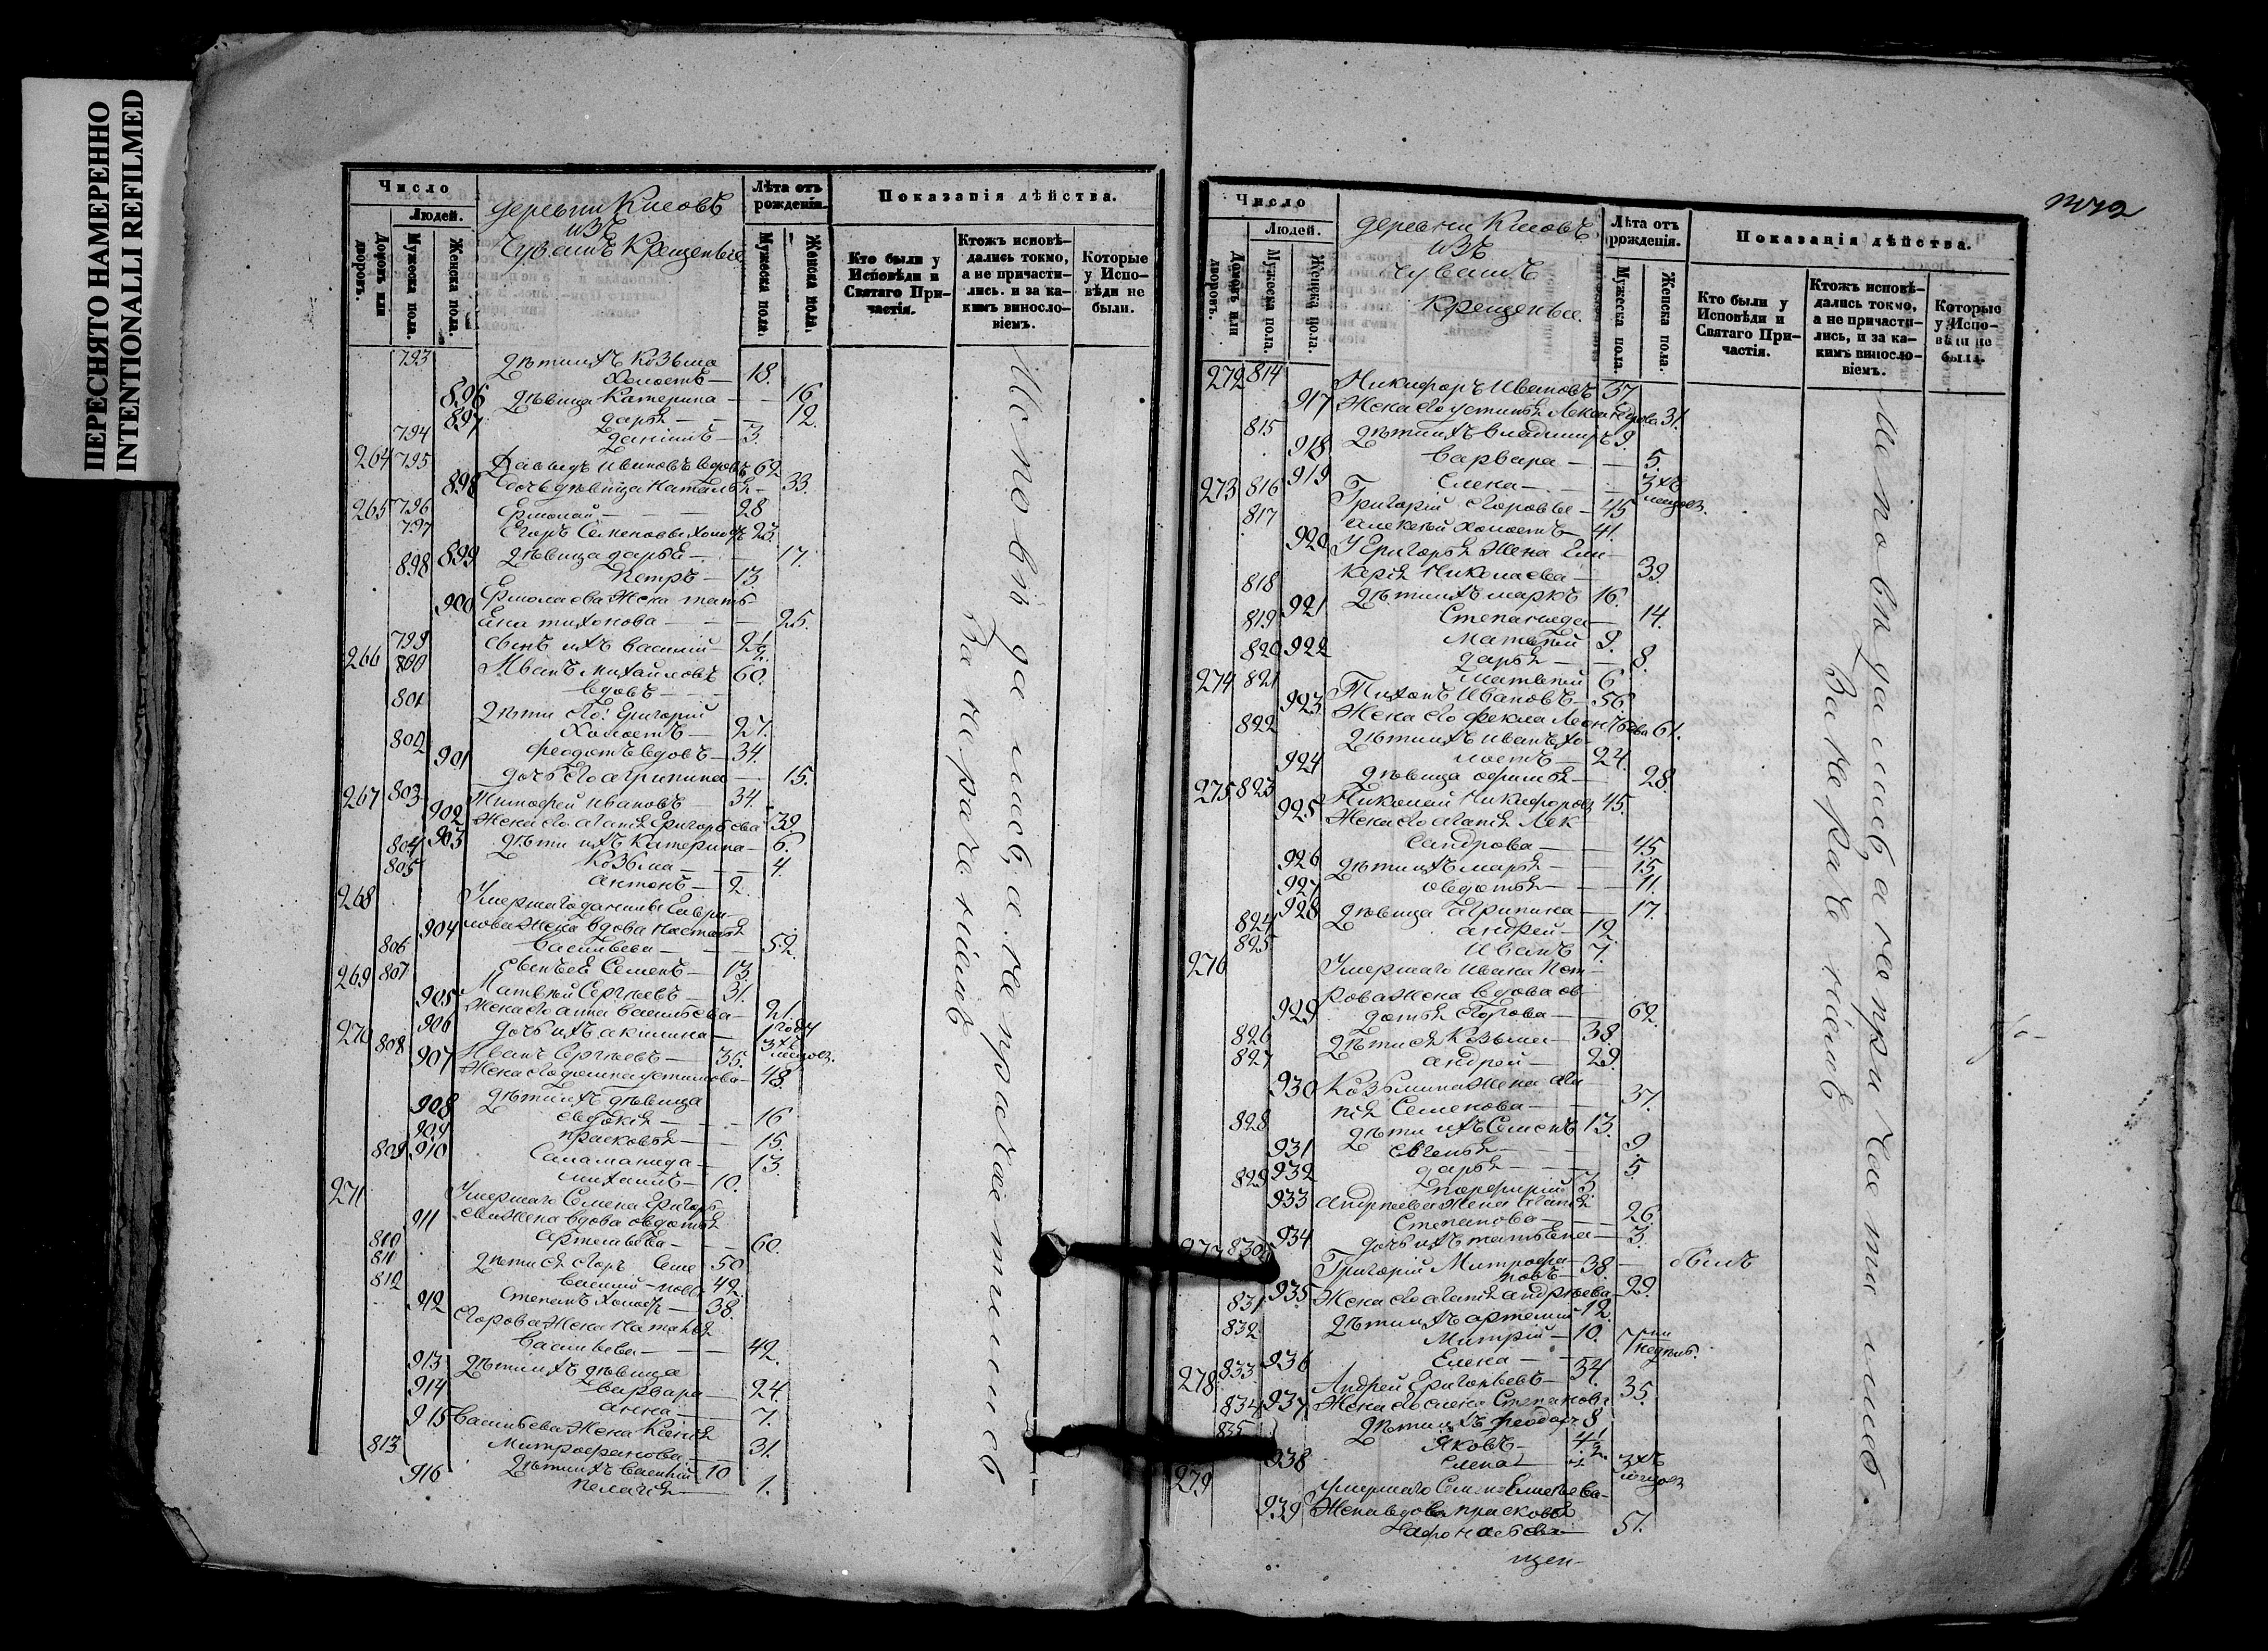 ПЕРЕСНЯТО НАМЕРЕННО
INTENTIONALLI REFILMED
Число
Людей.
Домовъ или дворовъ.
Мужеска пола.
Женска пола.
деревни Кисовъ
изъ
Чувашъ Крещеные
Лѣта отъ рожденія.
Мужеска пола.
Женска пола.
Показанія дѣйства.
Кто были у Исповѣди и Святаго Причастія.
Ктожъ исповѣдались токмо, а не причастились, и за какимъ винословіемъ.
Которые у Исповѣди не были.
793 дѣти ихъ Козьма
Холостъ — 18.
896 дѣвица Катерина — 16
897 дарья — 12.
794 данилъ — 3.
264 795 Давыдъ Ивановъ вдовъ 62
898 дочь дѣвица Наталья — 33.
265 796 Ермолай — 28
797 Егоръ Семеновы холостъ 23.
899 дѣвица дарья — 17.
898 Петръ — 13.
900 Ермолаева жена татья
Тихонова — 25.
799 сынъ ихъ василий — 2½
266 800 Иванъ Михайловъ 60.
вдовъ —
801 дѣти его: Григорій
Холостъ — 27.
802 Феодотъ вдовъ — 34.
901 дочь его агрипина — 15.
267 803 Тимофей Ивановъ — 34.
902 Жена его агапія Григорьева 39
903 дѣти ихъ Катерина — 6.
804 Козьма — 4.
805 антонъ — 2.
268 Умершаго данилы Гаври-
904 лова жена вдова настасья
васильева — 52.
806 сынъ ея Семенъ — 13
269 807 Матвѣй Сергѣевъ — 31.
905 Жена его анна васильева — 21.
906 дочь ихъ акилина — 1 году
270 808 Иванъ Сергѣевъ — 35. 3хъ мѣсяцов.
907 Жена его домна устинова — 48.
908 дѣти ихъ дѣвица
евдокія — 16
909 прасковья — 15.
910 Саламанида — 13.
809 михаилъ — 10.
271 Умершаго Семена Григорь-
911 ева жена вдова овдотья
артемьева — 60.
810 дѣти ея Егоръ Семе 50
811 василий — новы 42.
812 Степанъ холостъ — 38.
912 Егорова жена наталья
васильева — 42.
913 дѣти ихъ дѣвица
варвара — 24.
914 анна — 7.
915 васильева жена Ксенія
Митрофанова — 31.
813 дѣти ихъ василий 10
916 пелагія — 1.
Исповѣдались, а не причастились
За нераченіемъ
Число
Людей.
Домовъ или дворовъ.
Мужеска пола.
Женска пола.
деревни Кисовъ
изъ
чувашъ
крещеные.
Лѣта отъ рожденія.
Мужеска пола.
Женска пола.
Показанія дѣйства.
Кто были у Исповѣди и Святаго Причастія.
Ктожъ исповѣдались токмо, а не причастились, и за какимъ винословіемъ.
Которые у Исповѣди не были.
272 814 Никифоръ Ивановъ 37.
917 Жена его устинья Лександрова 31.
815 дѣти ихъ владимиръ 9.
918 варвара — 5.
919 Елена — 3хъ мѣсяцов.
273 816 Григорій Егоровы — 45
817 алексѣй холостъ — 41.
920 У Григорья жена Гли-
керія Николаева — 39.
818 дѣти ихъ маркъ 16.
921 Степанида — 14.
819 Матвѣй 9.
922 дарья — 8.
820 матвѣй 6
274 821 Тихонъ Ивановъ — 56.
923 Жена его фекла Леонтьева 61.
822 дѣти ихъ иванъ хо-
лостъ — 24.
924 дѣвица офимья — 28.
275 823 Николай Никифоровъ 45.
925 Жена его агапія Лек
сандрова — 45
926 дѣти ихъ марья — 15
927 овдотья — 11.
928 дѣвица агрипина — 17.
824 андрей — 12.
825 Иванъ 7.
276 Умершаго Ивана Пет-
рова жена вдова ов-
929 дотья Егорова — 62.
826 дѣти ея Козьма — 38.
827 андрей — 29.
930 Козьмина жена ага-
пія Семенова — 37.
828 дѣти ихъ Семенъ 13.
931 евгенья — 9
932 дарья — 5
829 порфирій 3.
933 андреева жена агапія
Степанова — 26.
934 дочь ихъ татьяна — 3.
277 830 Григорій Митрофа- 38 — былъ
новъ —
935 Жена его агапія андрѣева — 29.
831 дѣти ихъ артемий 12.
832 Митрій — 10.
936 Елена — 7ми недѣль.
278 833 Андрей Григорьевъ — 34.
937 Жена его елена Степанова 35.
834 дѣти ихъ феодоръ 8
835 Яковъ — 4½
938 Елена — 3хъ мѣсяцов
279 умершаго
939 Жена вдова прасковья
57.
Исповѣдались, а не причастились.
За нераченіемъ